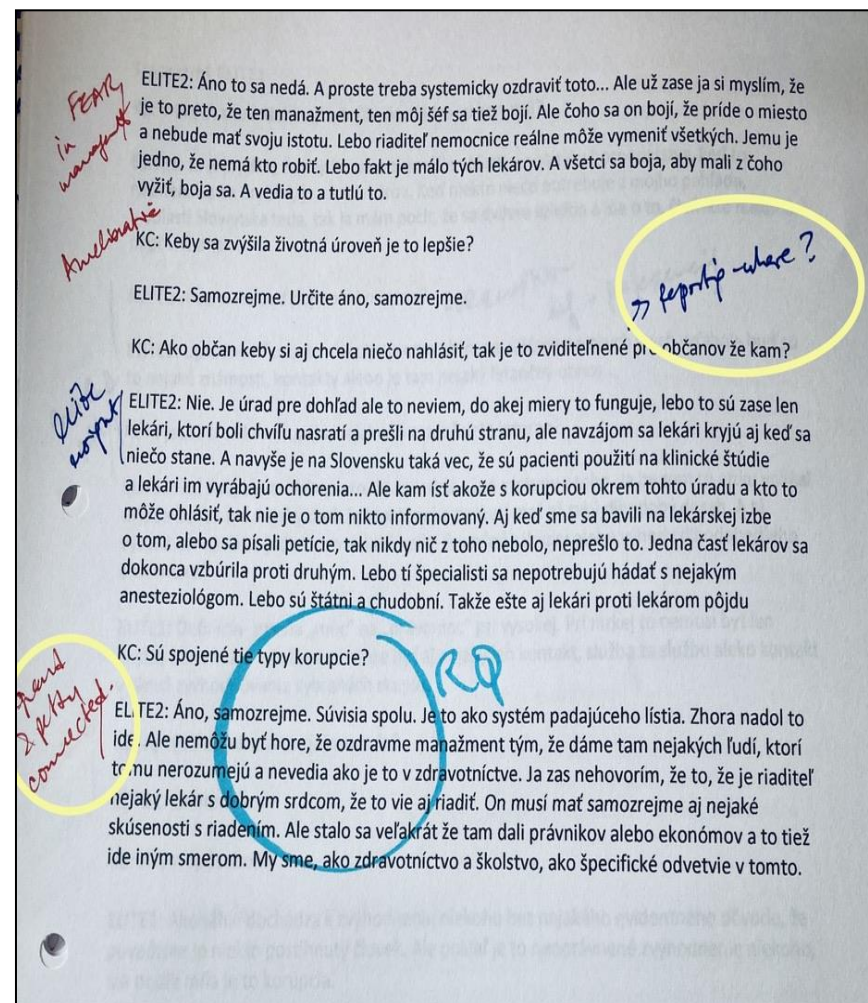 FEAR
in
managemt
ELITE2: Áno to sa nedá. A proste treba systemicky ozdraviť toto... Ale už zase ja si myslím, že
je to preto, že ten manažment, ten môj šéf sa tiež bojí. Ale čoho sa on bojí, že príde o miesto
a nebude mať svoju istotu. Lebo riaditeľ nemocnice reálne môže vymeniť všetkých. Jemu je
jedno, že nemá kto robiť. Lebo fakt je málo tých lekárov. A všetci sa boja, aby mali z čoho
vyžiť, boja sa. A vedia to a tutlú to.
KC: Keby sa zvýšila životná úroveň je to lepšie?
ELITE2: Samozrejme. Určite áno, samozrejme.
where?
KC: Ako občan keby si aj chcela niečo nahlásiť, tak je to zviditeľnené pre občanov že kam?
elite
ELITE2: Nie. Je úrad pre dohľad ale to neviem, do akej miery to funguje, lebo to sú zase len
lekári, ktorí boli chvíľu nasratí a prešli na druhú stranu, ale navzájom sa lekári kryjú aj keď sa
niečo stane. A navyše je na Slovensku taká vec, že sú pacienti použití na klinické štúdie
a lekári im vyrábajú ochorenia... Ale kam ísť akože s korupciou okrem tohto úradu a kto to
môže ohlásiť, tak nie je o tom nikto informovaný. Aj keď sme sa bavili na lekárskej izbe
o tom, alebo sa písali petície, tak nikdy nič z toho nebolo, neprešlo to. Jedna časť lekárov sa
dokonca vzbúrila proti druhým. Lebo tí špecialisti sa nepotrebujú hádať s nejakým
anesteziológom. Lebo sú štátni a chudobní. Takže ešte aj lekári proti lekárom pôjdu
KC: Sú spojené tie typy korupcie?
RQ
& petty
connected.
ELITE2: Áno, samozrejme. Súvisia spolu. Je to ako systém padajúceho lístia. Zhora nadol to
ide. Ale nemôžu byť hore, že ozdravme manažment tým, že dáme tam nejakých ľudí, ktorí
tomu nerozumejú a nevedia ako je to v zdravotníctve. Ja zas nehovorím, že to, že je riaditeľ
nejaký lekár s dobrým srdcom, že to vie aj riadiť. On musí mať samozrejme aj nejaké
skúsenosti s riadením. Ale stalo sa veľakrát že tam dali právnikov alebo ekonómov a to tiež
ide iným smerom. My sme, ako zdravotníctvo a školstvo, ako špecifické odvetvie v tomto.